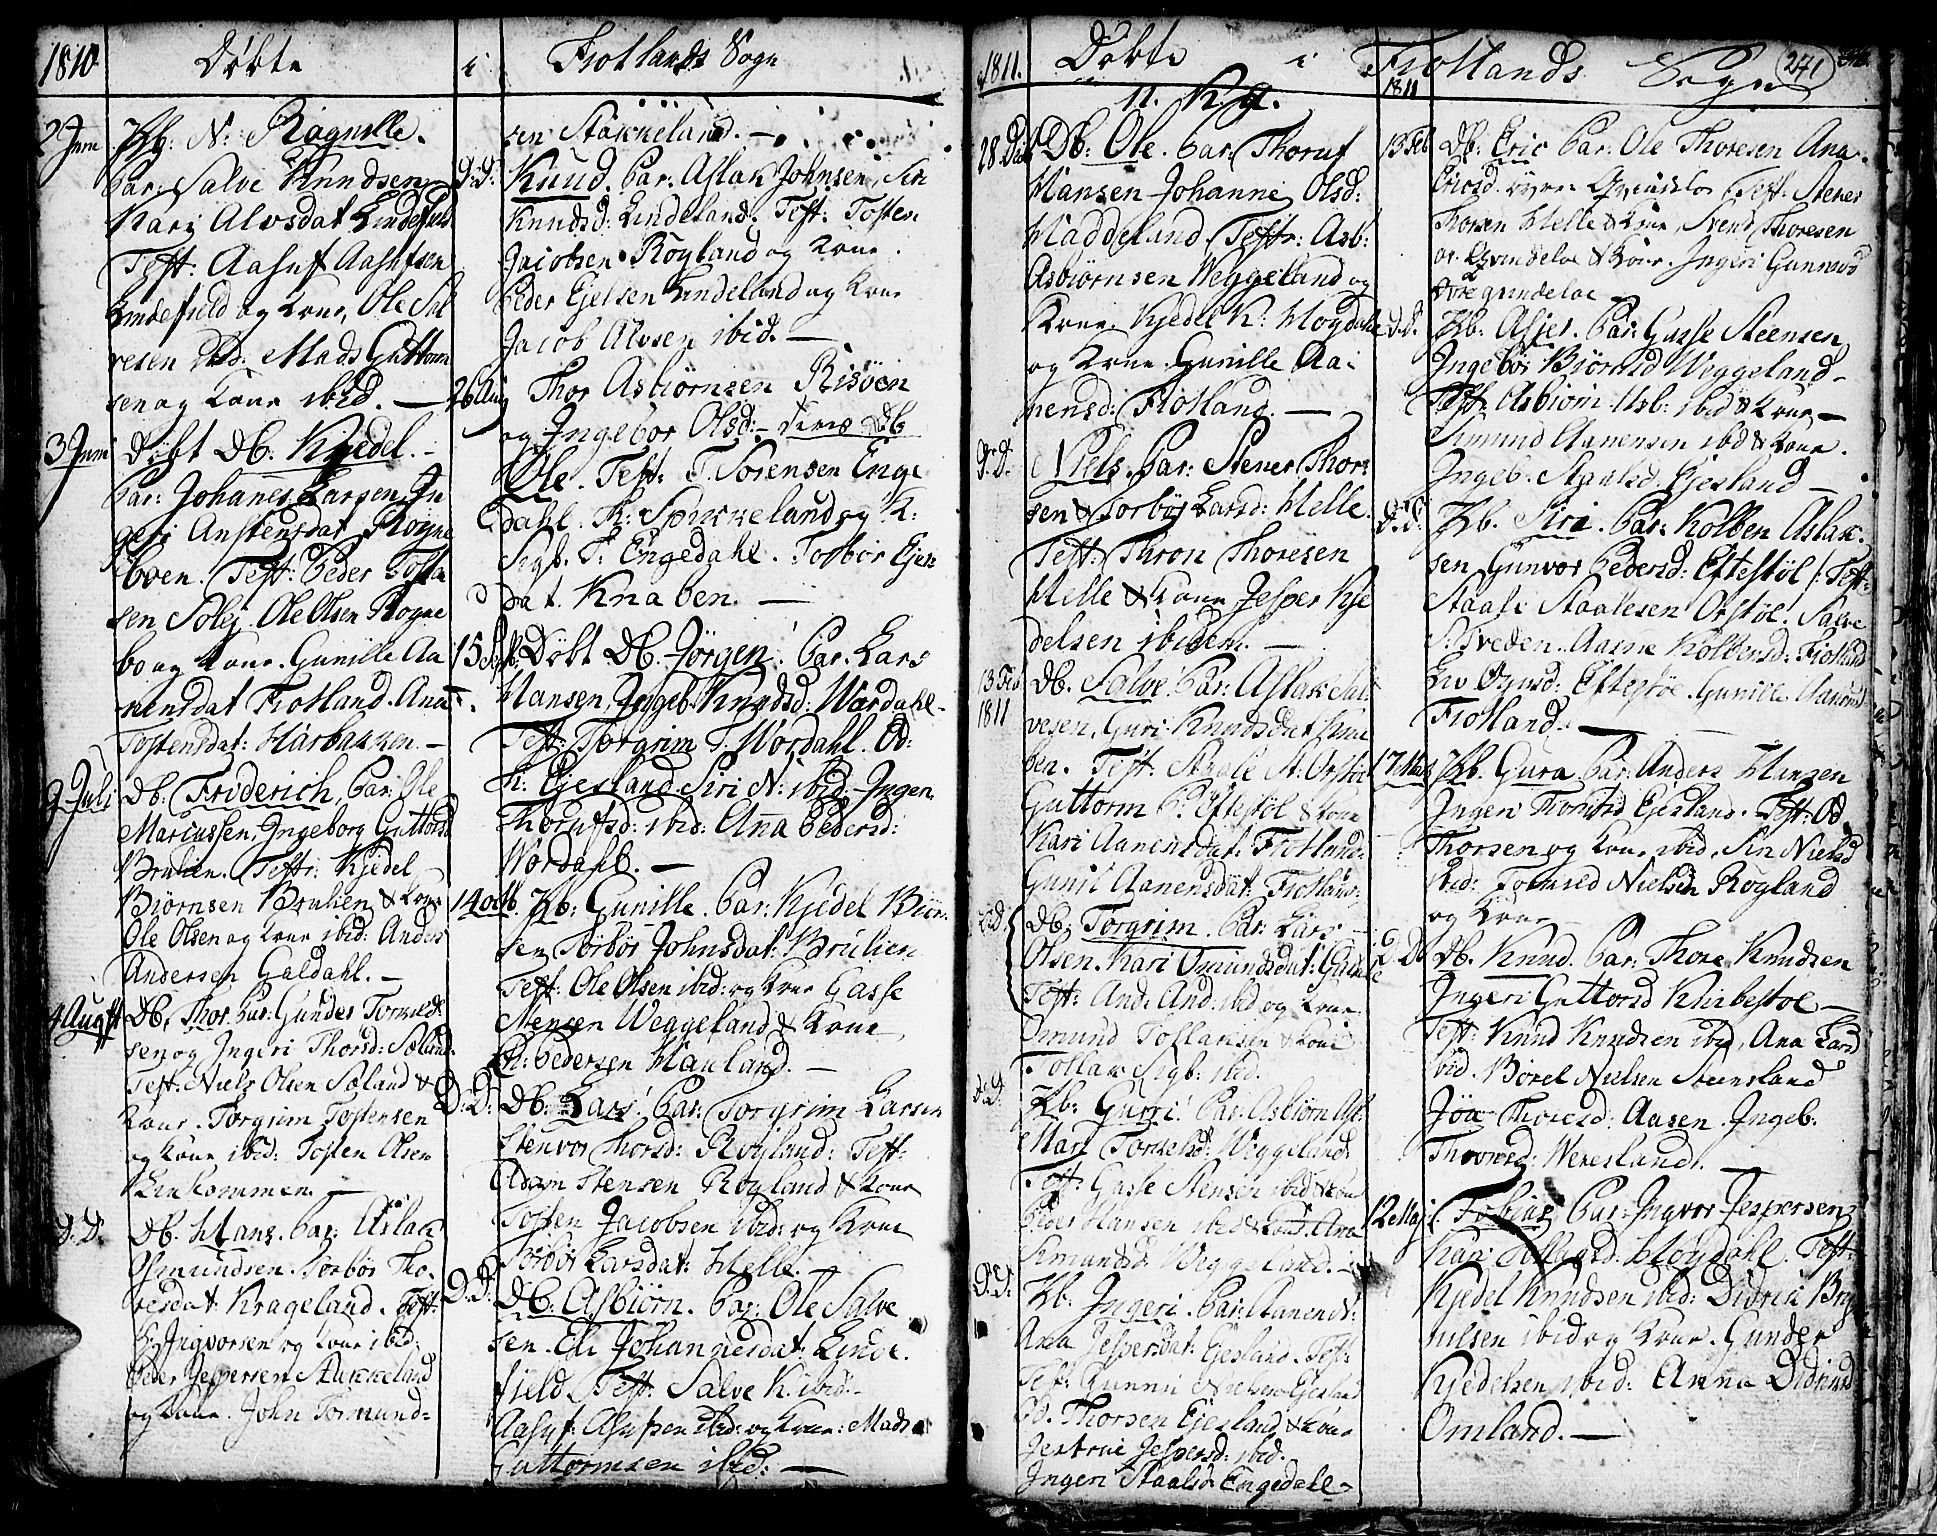 1810 Döbte i Fiotlands Sogn
2 Juni Pb: N: Ragnille.
Par: Salve Knudsen
Kari Alvsdat Lindefield
Test: Aasulf Aasulfsen
Lindefield og Kone, Ole Sal
vesen ibid: Mads Guttorm
sen og Kone ibid. —
3 Juni döbt Db. Kjedel. -
Par: Johannes Larsen, In
geri Anstensdat Rogne
boen. Test: Peder Tosta
sen Solej Ole Olsen Rogne
bo og Kone. Gunille Aa
nensdat Fiotland. Ana
Tostensdat: Harbakken. —
9 Juli Db: Friderich. Par: Ole
Mariussen, Ingeborg Guttorsd
Brulien. Test: Kjedel
Biörnsen Brulien & Kone
Ole Olsen og Kone ibid: Anders
Andersen Galdahl. —
4 August Db. Thor. Par: Gunder
sen og Ingeri Thorsd: Sæland
Test: Niels Olsen Sæland &
Kone. Torgrim Tostensen
og Kone ibid: Tosten Olsen
Linkommen. —
D. D. Db. Hans. Par: Aslak
Osmundsen. Torbör Tho.
resdat: Krageland. Test:
P. Ingvorsen og Kone ibid:
Peder Jespersen Stakkeland
og Kone. John Tormund=
sen Stakkeland. —
D: D: Knud. Par: Aslak Johnsen, Siri
Knudsd: Lindeland. Test: Tosten
Jacobsen Röyland og Kone.
Peder Ejelsen Lindeland og Kone
Jacob Alvsen ibid. —
26 Aug Thor Asbiörnsen Risöen
og Ingebor Olsd: - Db
Ole. Test: T. Sörensen Enge
dahl. Th: Spikkeland og K:
Sigb. T: Engedahl. Torbör Ejen
dat. Knaben. —
15 Sept: Döbt Db. Jörgen. Par. Lars
Hansen, Ingeb: Knudsd: Wordahl -
Test: Torgrim T. Wordahl. Od:
Th: Ejesland. Siri N: ibid: - Inger.
Thorulfsd: ibid: Anna Pedersd:
Wordahl. —
14 Octb. Pb: Gunille. Par: Kjedel Biör.
sen Törbör Johnsdat: Brulien
Test: Ole Olsen ibid: og Kone Gasse
Stensen Weggeland & Kone
Th: Pedersen Hauland. —
D: D: Db: Lars. Par: Torgrim Larsen
Stenvor Thorsd: Röyland: Test:
Adam Stensen Röyland & Kone
Tosten Jacobsen ibid: og Kone
Törbör Larsdat: Helle. —
D: D: Db: Asbiörn. Par: Ole Salve
sen. Eli Johannesdat: Linde
field. Test: Salve K. ibid: -
Aasulf Asulfsen ibid: og Kone: Mads
Guttormsen ibid: —
1811. Döbte i Fiotlands Sogn 271
28 Dec Db: Ole. Par: Thoruf
Hansen Johanne Olsd:
Haddeland Test: Asb:
Asbiörnsen Weggeland og
Kone. Kjedel K: Högdahl
og Kone. Gunille Aa:
nensd: Fiotland. —
D: D. Niels. Par: Stener Thor:
sen & Torbör Larsd: Helle.
Test: Thron Thoresen
Helle & Kone Jesper Kje
delsen ibidem. —
13 Feb 1811 Db. Salve. Par: Aslak Sal
vesen, Guri Knudsdat Kna
ben. Test: Staale St: Orstöe
Guttorm P: Eftestöl & Kone
Kari Aanensdat: Fiotland.
Gunil Aanensdat: Fiotland:
D: D: Db: Torgrim. Par: Lars
Olsen. Kari Omundsdat: Galdale
Test: And. And. ibid og Kone
Omund Tollaksen & Kone
Tollak Sigb: ibid.
D: D. Pb: Gurri. Par: Asbiörn As:
Mari Tormelsd: Weggeland
Test: Gasse Stensen ibid & Kone
Peder Hansen ibid & Kone. Ana
Weggeland. —
D: D: Pb. Ingeri. Par: Aanen
Ana Jespersdat: Ejesland. Test:
Gunni Nielsen Ejesland
Od. Thorsen Ejesland & Kone
Jertrue Jespersd: ibid.
Ingeri Staalsd: Engedahl -
1811
13 Feb Db: Eric Par: Ole Thoresen Ana.
Ericsd. Test: Stener
Thorsen Helle & Kone, Svend Thoresen
& Kone. Ingeri Gunners
D. D. Pb. Asjer. Par: Gasse Steensen
Ingebör Biörnsd Weggeland -
Test: Asbiörn Asb: ibid & Kone —
Omund Aanensen ibid & Kone.
Ingeb. Staalsd. Ejesland —
D: D: Pb. Siri. Par: Kolben Aslak.
sen Gunvor Pedersd: Eftestöl /: Test:
Staale Staalesen Orstöe. Salve
Tveden. Aasne Kolbensd: Fiotland
Eftestöe. Gunille Aanensd
Fiotland. —
17 Mars Pb. Gura. Par: Anders Hansen
Ingeri Ejesland. Test: Od.
Thorsen og Kone ibid. Siri Nielsd
ibid: Nielsen Röyland
og Kone —
D. D. Db. Knud. Par: Thore Knudsen
Ingeri Guttorsd Kvibestöe —
Test: Knud Knudsen ibid, Ana Larsd
ibid. Börel Nielsen Steensland
Jöa Thoresd: Aasen. Ingeb.
Weresland. —
12 Maj: Tobias, Par: Ingvor Jespersen
Kari Högdahl. Test:
Kjedel Knudsen ibid: Didrik Bryn
nilsen ibid og Kone. Gunder
Kjedelsen ibid: Anna Didriksd
Omland. —